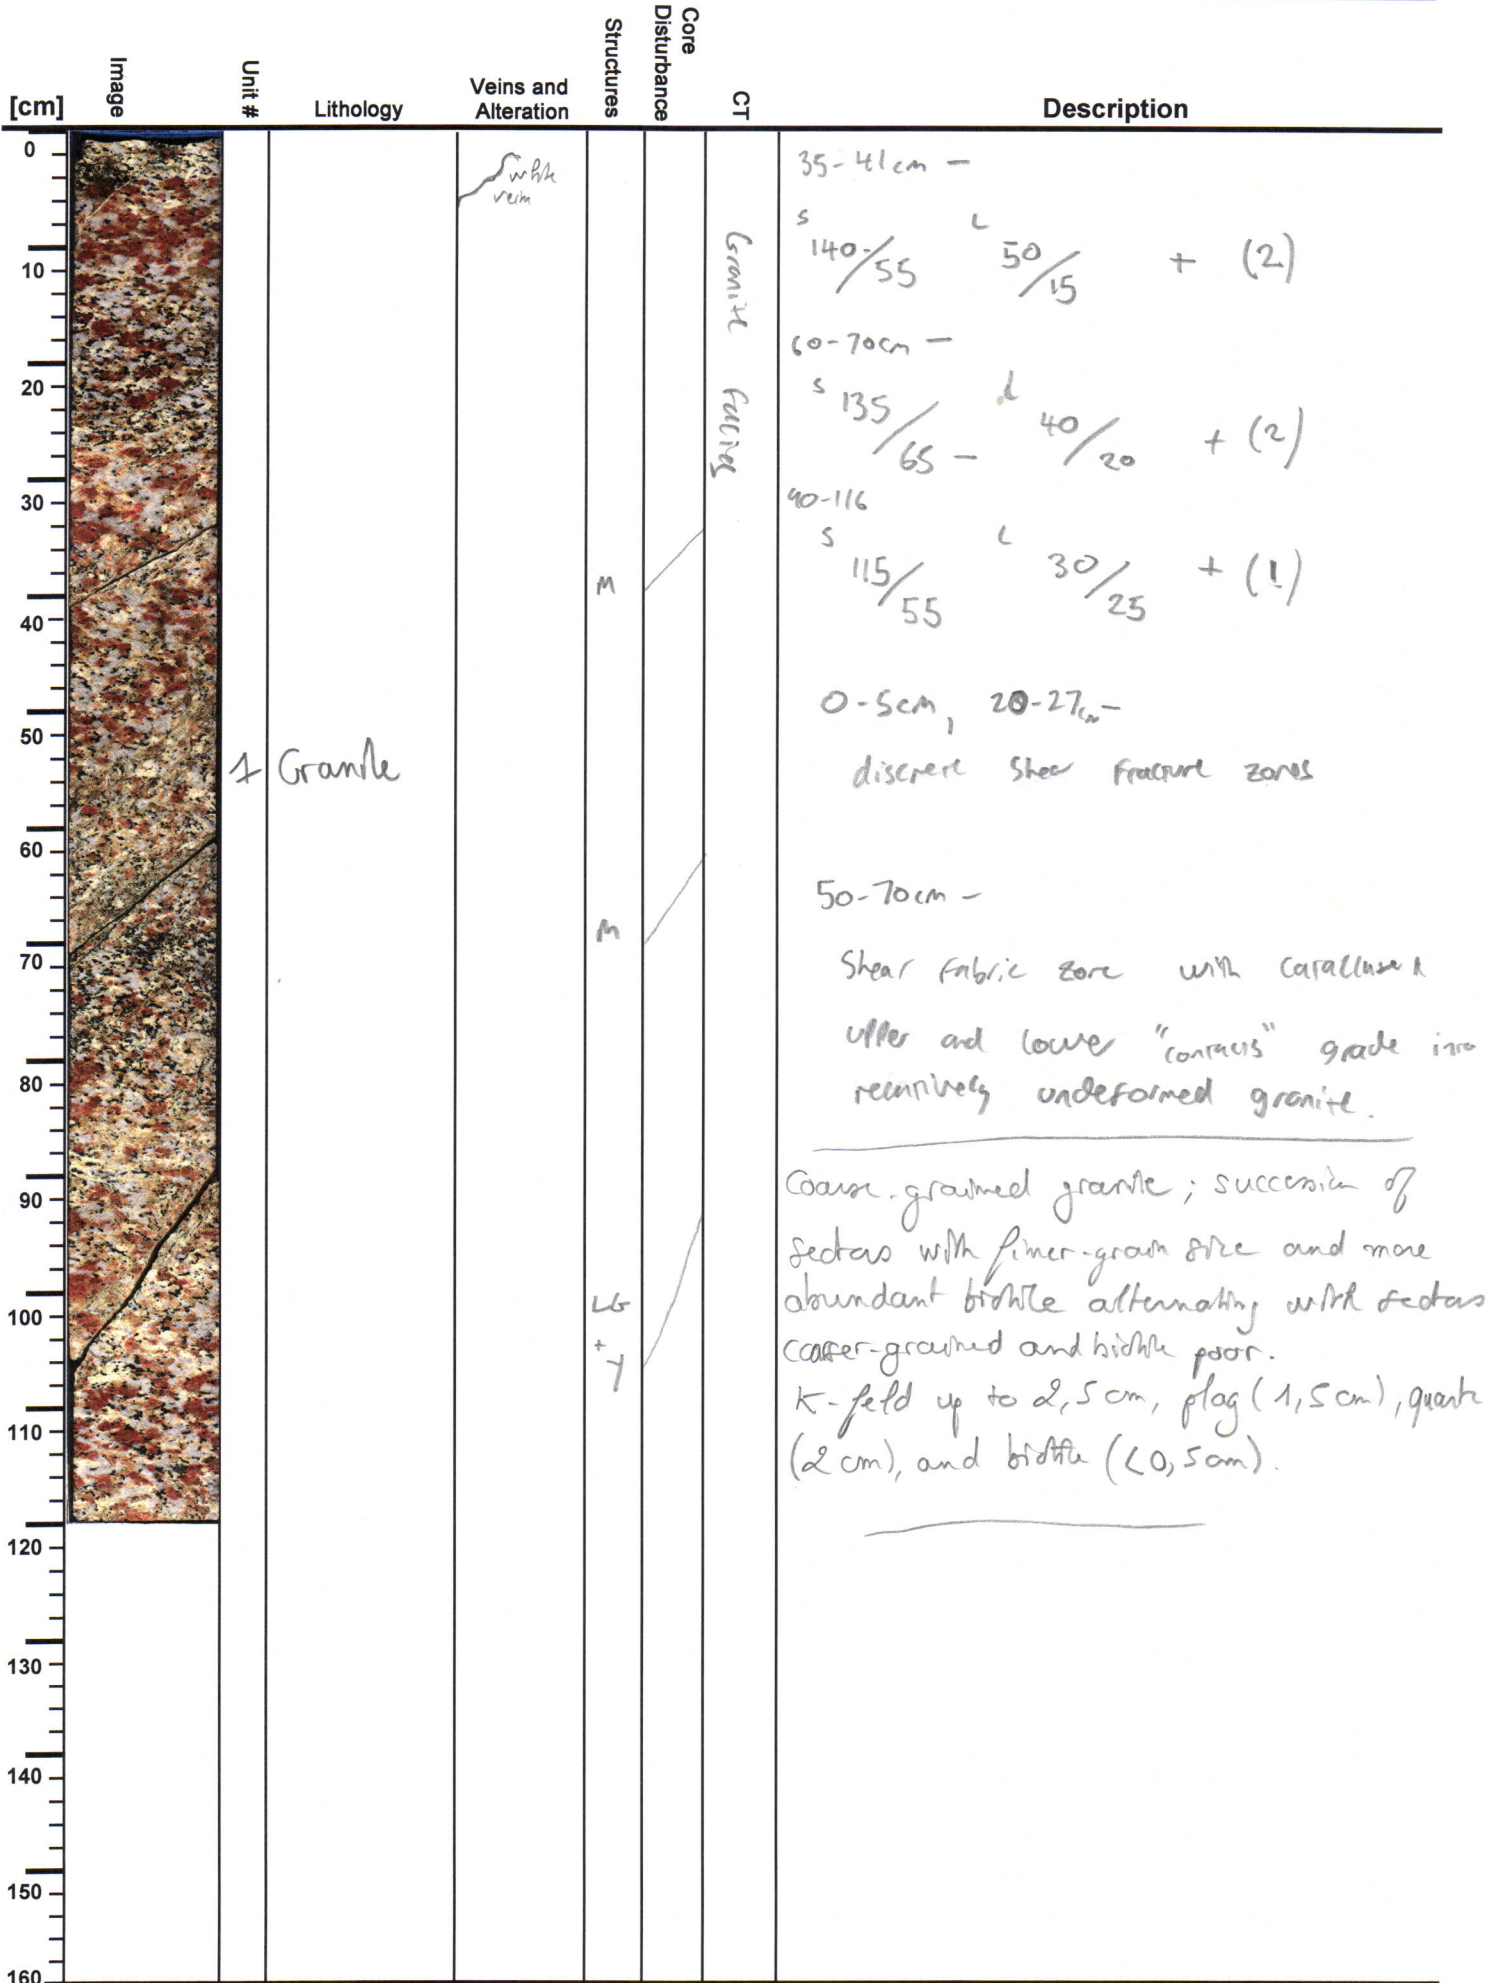 [cm]
Image
Unit #
Lithology
Veins and Alteration
Structures
Core Disturbance
CT
Description
0
10
20
30
40
50
60
70
80
90
100
110
120
130
140
150
160
white
vein
1 Granite
M
M
LG
+
Y
Granite facies
35-41cm -
S 140/55 L 50/15 + (2)
60-70cm -
S 135/65 - L 40/20 + (2)
90-116
S 115/55 L 30/25 + (1)
0-5cm, 20-27cm -
discrete shear fracture zones
50-70cm -
Shear fabric zone with
upper and lower "contacts" grade into
relatively undeformed granite.
Coarse-grained granite; succession of
sectors with finer-grain size and more
abundant biotite alternating with sectors
coarser-grained and biotite poor.
K-feld up to 2,5 cm, plag (1,5 cm), quartz
(2 cm), and biotite (<0,5 cm).